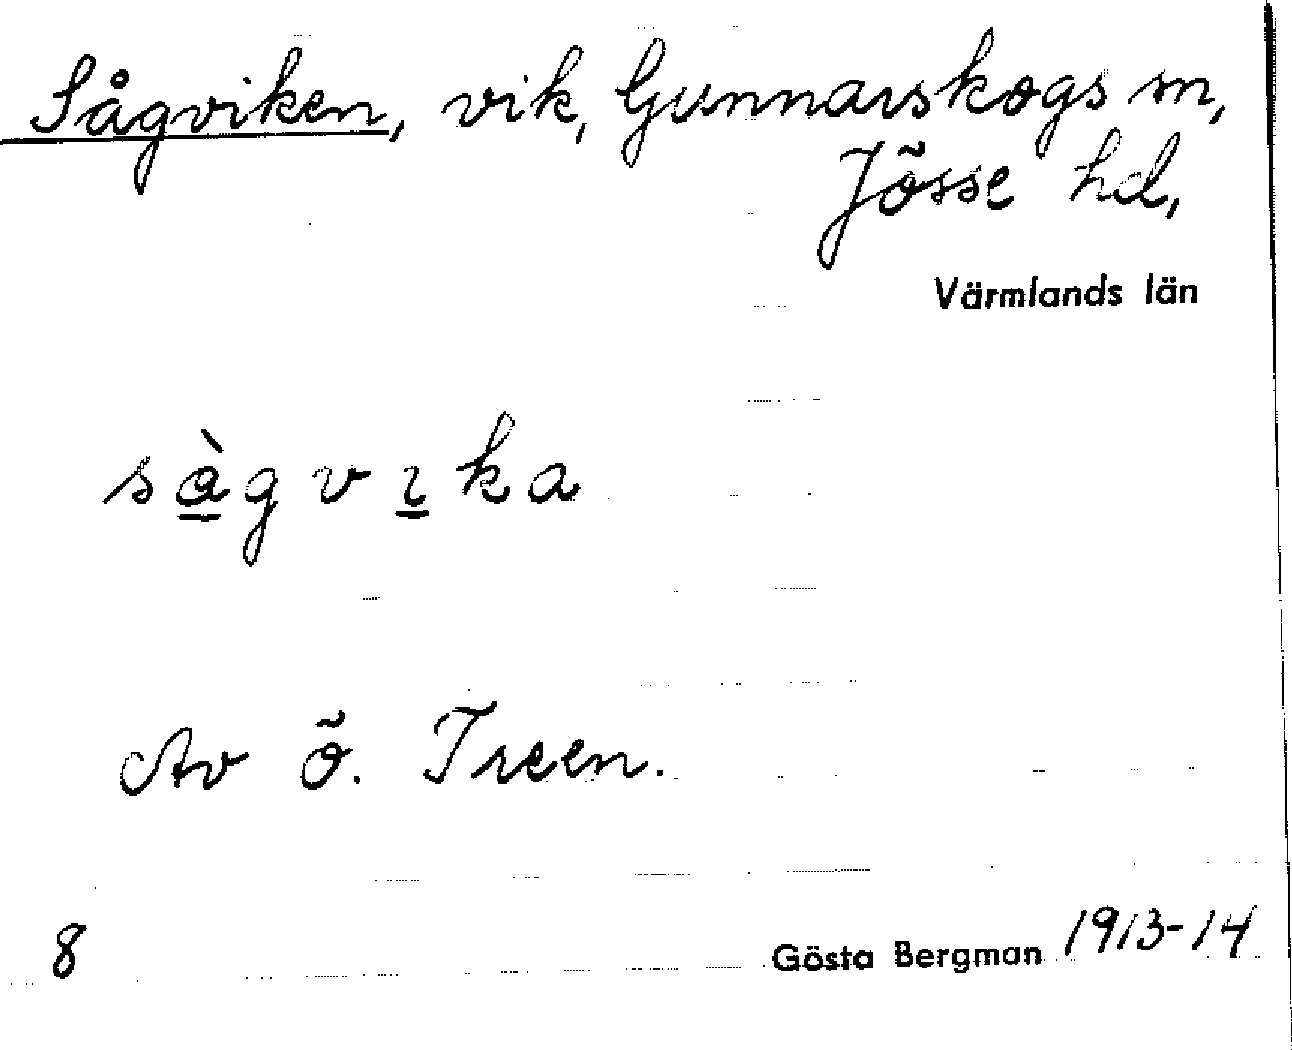 Sågviken, vik, Gunnarskogs sn,
Jösse hd,
Värmlands län
sàgvıka
Av ö. Treen.
8
Gösta Bergman 1913-14